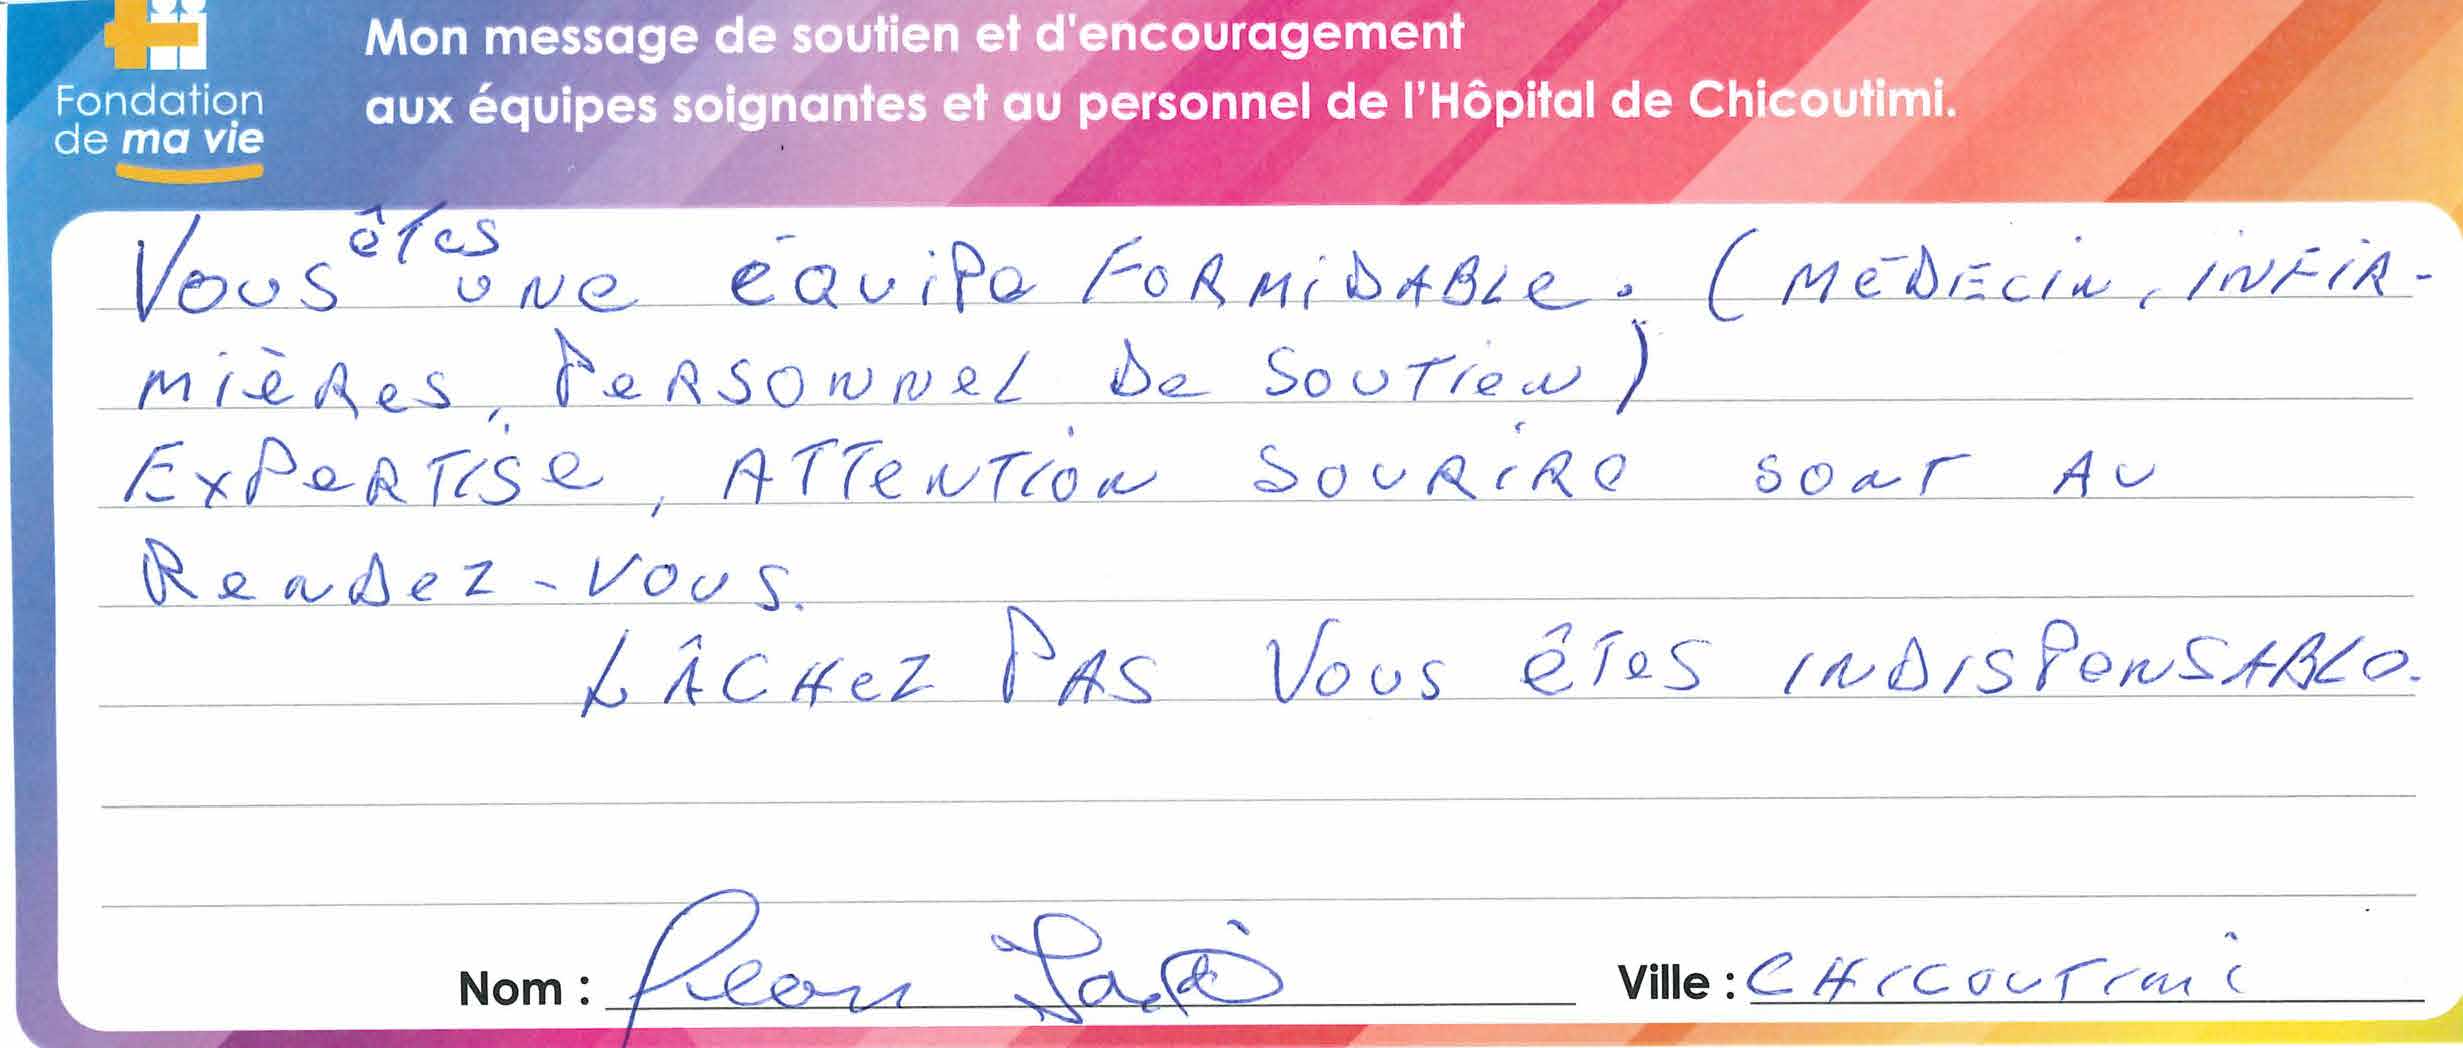 Mon message de soutien et d'encouragement
aux équipes soignantes et au personnel de l'Hôpital de Chicoutimi.
Fondation
de ma vie
Vous êtes une équipe FORMIDABLE. (MÉDECIN, INFIR-
MIÈRES, PERSONNEL DE SOUTIEN)
EXPERTISE, ATTENTION SOURIRE SONT AU
RENDEZ-VOUS.
LÂCHEZ PAS VOUS ÊTES INDISPENSABLE.
Nom : Jean
Ville : CHICOUTIMI